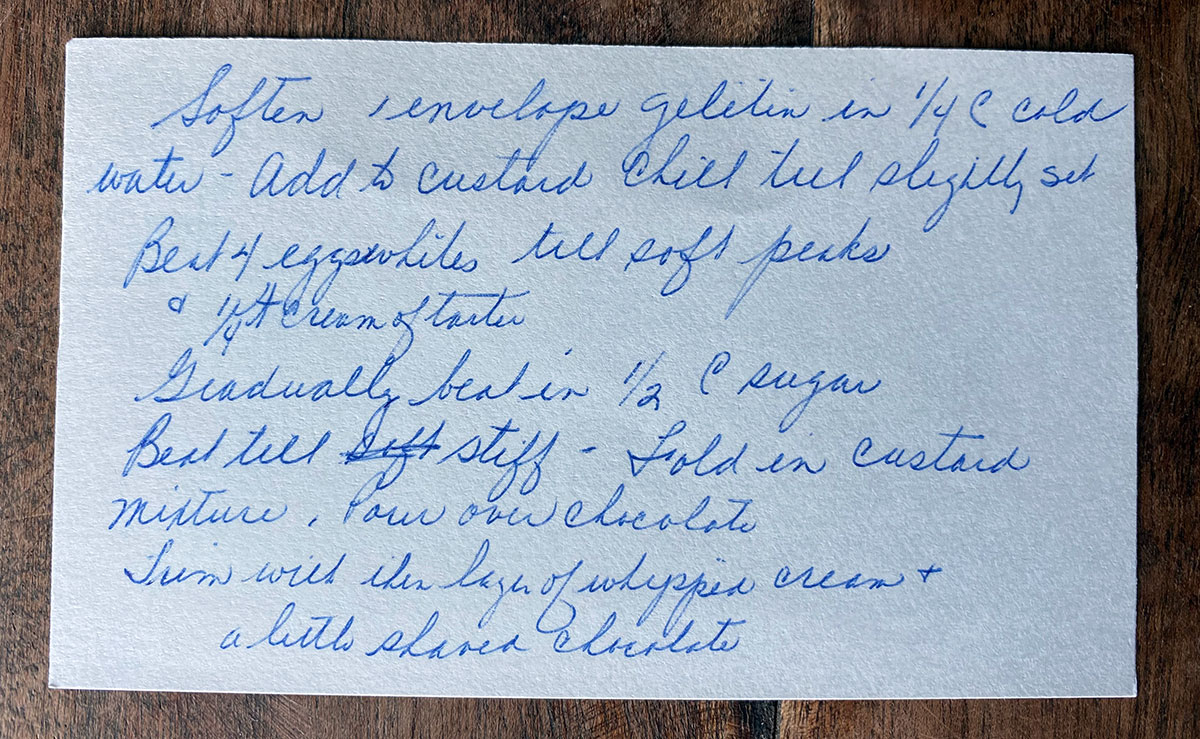 Soften 1 envelope gelitin in 1/4 C cold
water - Add to custard Chill till slightly set
Beat 4 eggswhites till soft peaks
& 1/4 t cream of tarter
Gradually beat in 1/2 C sugar
Beat till soft stiff - Fold in custard
mixture. Pour over chocolate
Trim with thin layer of whipped cream +
a little shaved chocolate